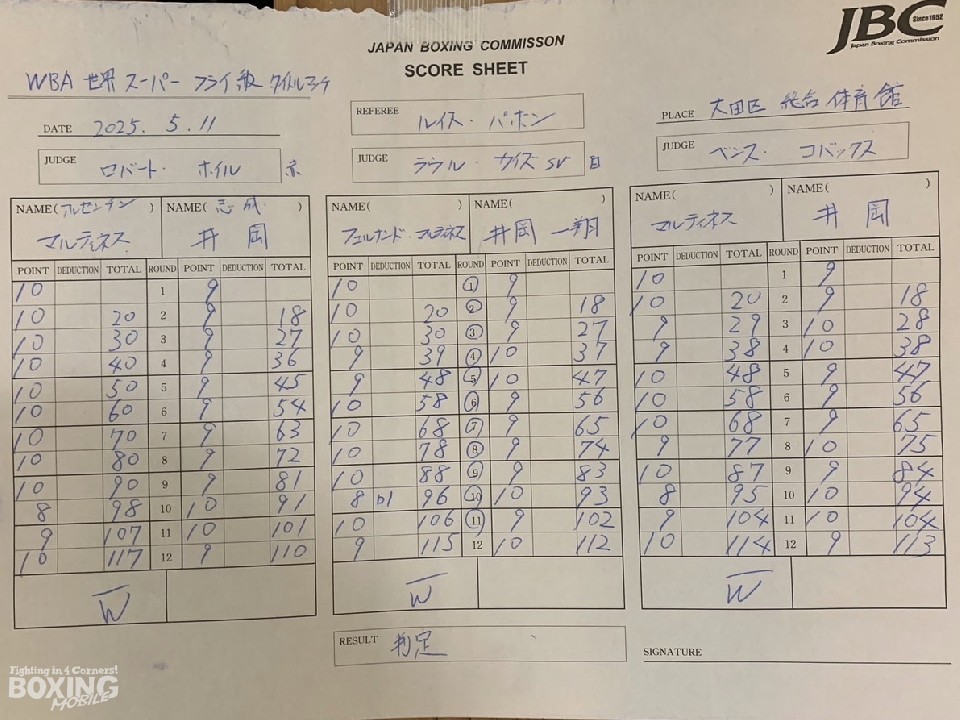 JBC
Since 1952
Japan Boxing Commission
JAPAN BOXING COMMISSON
SCORE SHEET
WBA 世界 スーパー フライ級 タイトルマッチ
DATE 2025. 5. 11
REFEREE ルイス・パボン
PLACE 大田区 総合 体育館
JUDGE ロバート・ホイル
JUDGE ラウル・カイズ SV
JUDGE ベンス・コバックス
NAME(アルゼンチン) マルティネス NAME(志成) 井岡
NAME( ) フェルナンド・マルティネス NAME( ) 井岡 一翔
NAME( ) マルティネス NAME( ) 井岡
POINT DEDUCTION TOTAL ROUND POINT DEDUCTION TOTAL POINT DEDUCTION TOTAL ROUND POINT DEDUCTION TOTAL POINT DEDUCTION TOTAL ROUND POINT DEDUCTION TOTAL
10 1 9 10 1 9 10 1 9
10 20 2 9 18 10 20 2 9 18 10 20 2 9 18
10 30 3 9 27 10 30 3 9 27 9 29 3 10 28
10 40 4 9 36 9 39 4 10 37 9 38 4 10 38
10 50 5 9 45 9 48 5 10 47 10 48 5 9 47
10 60 6 9 54 10 58 6 9 56 10 58 6 9 56
10 70 7 9 63 10 68 7 9 65 10 68 7 9 65
10 80 8 9 72 10 78 8 9 74 9 77 8 10 75
10 90 9 9 81 10 88 9 9 83 10 87 9 9 84
8 98 10 10 91 8 D1 96 10 10 93 8 95 10 10 94
9 107 11 10 101 10 106 11 9 102 9 104 11 10 104
10 117 12 9 110 9 115 12 10 112 10 114 12 9 113
W W W
RESULT 判定
SIGNATURE
Fighting in 4 Corners!
BOXING
MOBILE